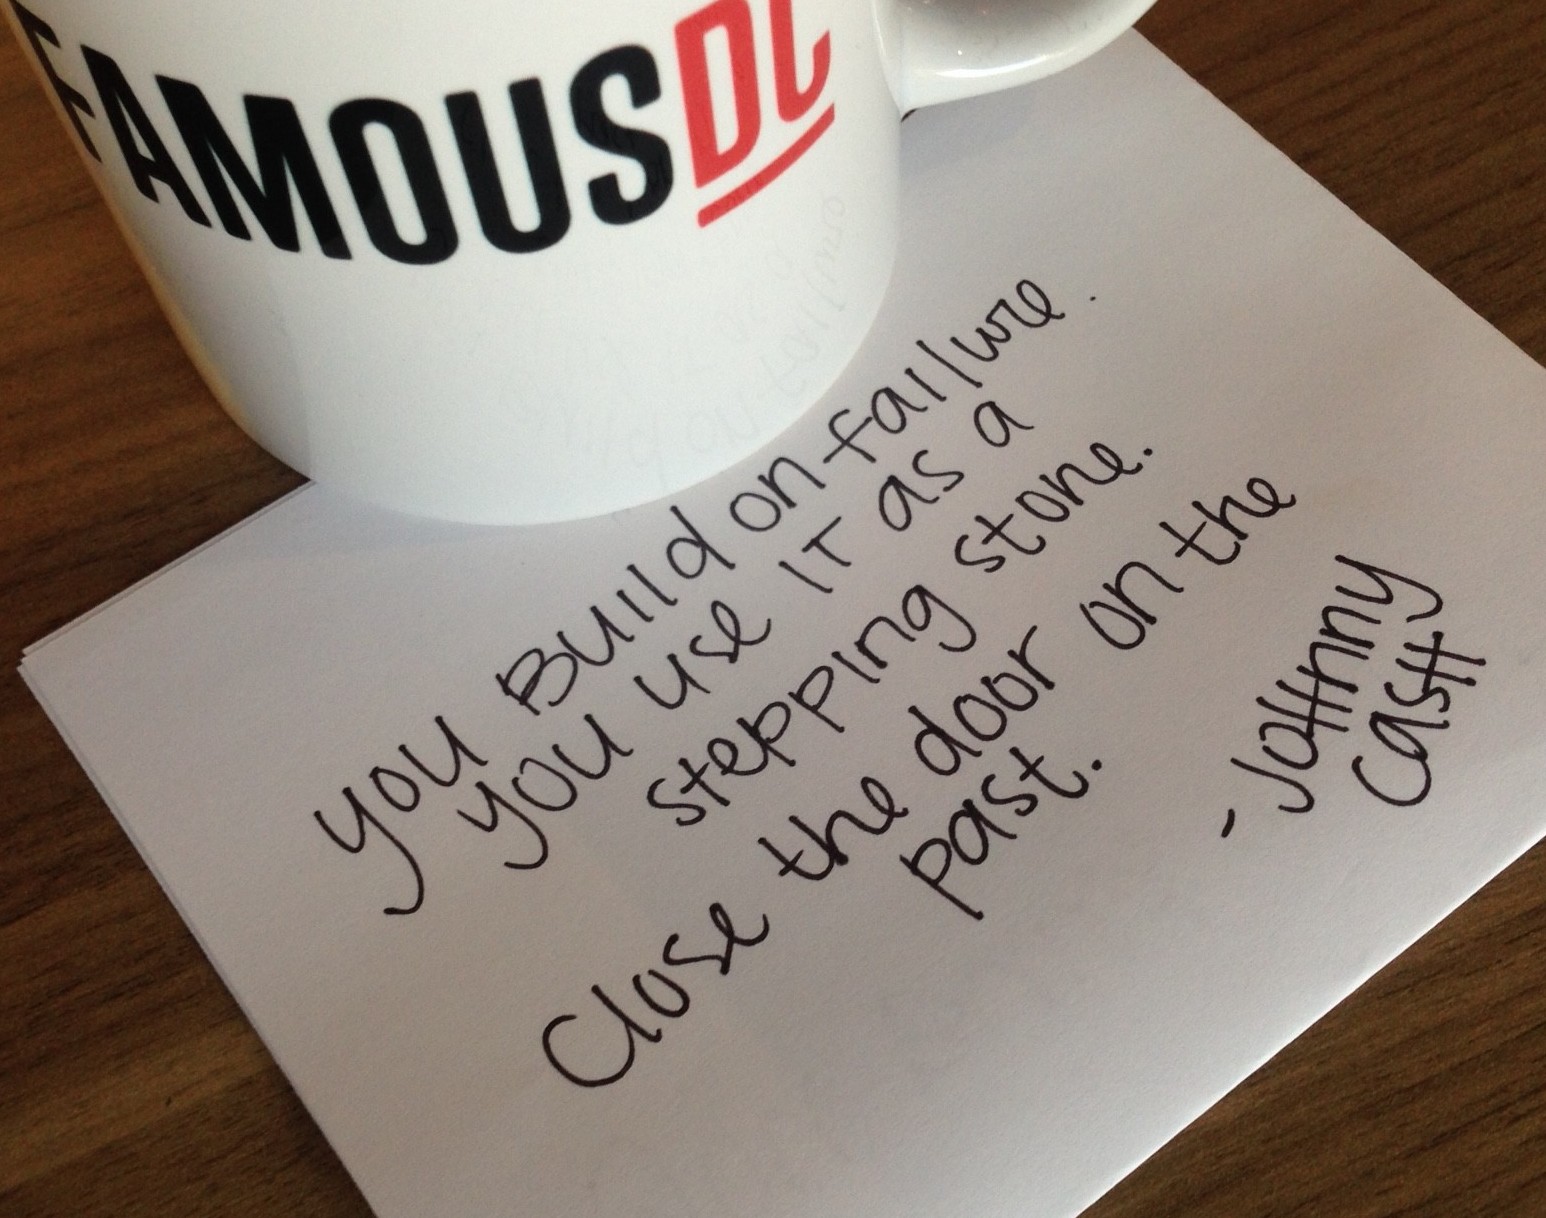 FAMOUSDC
you Build on failure.
you use it as a
stepping stone.
Close the door on the
past.
- JoHnny
CasH